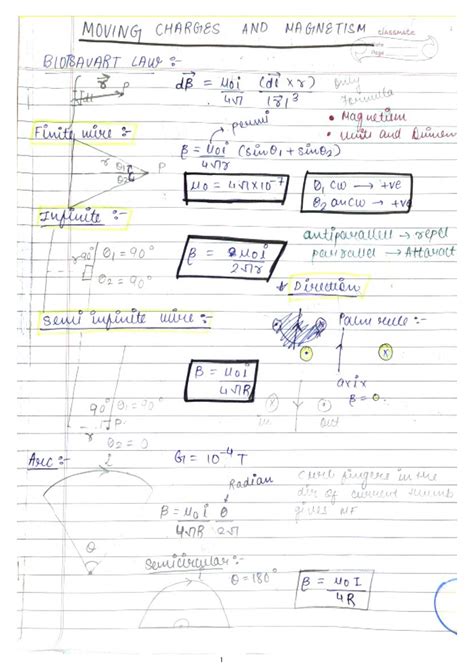 MOVING CHARGES AND MAGNETISM
classmate
Date
Page
BIOTSAVART LAW :-
dB⃗ = μ0i (dl⃗ × r) only
4π |r⃗|³ formula
r⃗ P
dl
• Magnetism
• Units and Dimen
permi
Finite wire :-
r θ1 P
θ2
β = μ0i (sinθ1 + sinθ2)
4πr
μ0 = 4π×10⁻⁷
θ1 cw → +ve
θ2 ancw → +ve
Infinite :-
90° θ1 = 90°
r
θ2 = 90°
β = μ0i
2πr
antiparallel → repel
parallel → Attract
Direction
Semi infinite wire :-
Palm rule :-
β = μ0i
4πR
axix
β = 0
90° θ1 = 90°
P
r
θ2 = 0
in out
Arc :-
l
G = 10⁻⁴ T
Radian
β = μ0 i θ
4πR 2π
θ
Curl fingers in the
dir of current
gives MF
Semicircular :-
i θ = 180°
β = μ0 I
4R
1